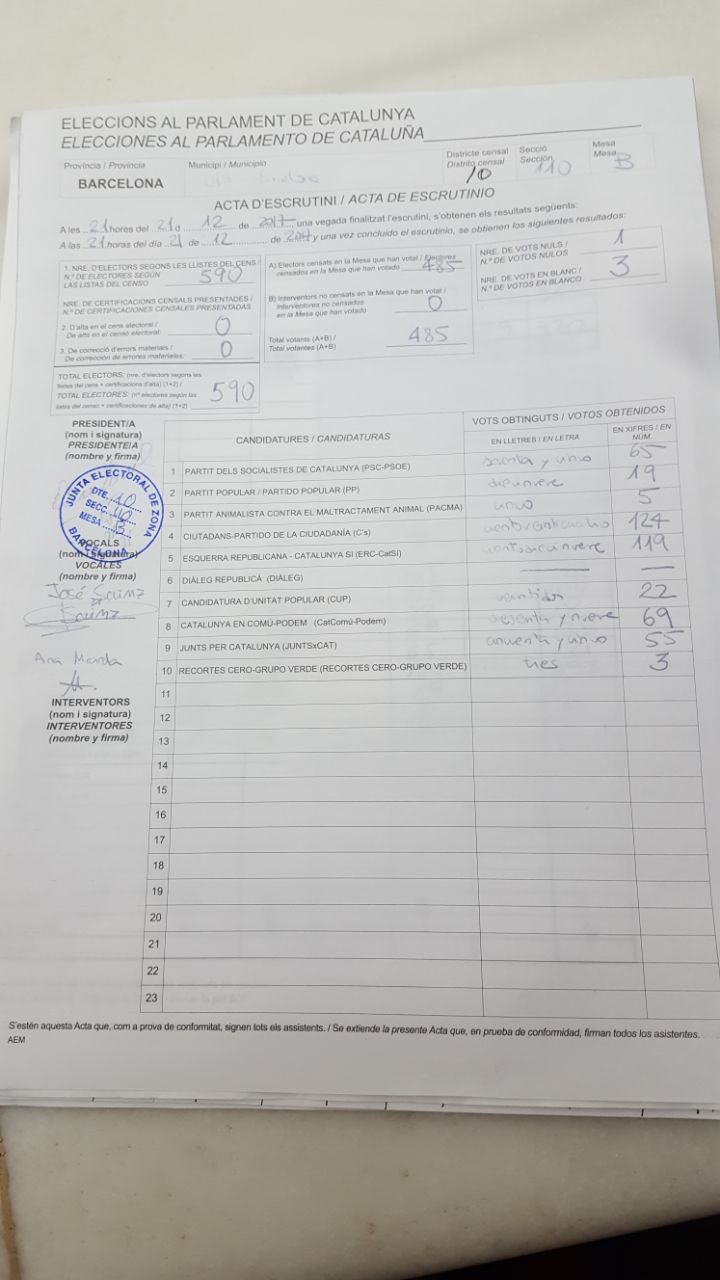 ELECCIONS AL PARLAMENT DE CATALUNYA
ELECCIONES AL PARLAMENTO DE CATALUÑA
Província / Provincia
BARCELONA
Municipi / Municipio
Districte censal
Distrito censal
10
Secció
Sección
110
Mesa
Mesa
B
ACTA D'ESCRUTINI / ACTA DE ESCRUTINIO
A les 21 hores del 21 d 12 de 2017, una vegada finalitzat l'escrutini, s'obtenen els resultats següents:
A las 21 horas del día 21 de 12 de 2017 y una vez concluido el escrutinio, se obtienen los siguientes resultados:
1. NRE. D'ELECTORS SEGONS LES LLISTES DEL CENS /
N.º DE ELECTORES SEGÚN
LAS LISTAS DEL CENSO
590
NRE. DE CERTIFICACIONS CENSALS PRESENTADES /
N.º DE CERTIFICACIONES CENSALES PRESENTADAS
2. D'alta en el cens electoral /
De alta en el censo electoral:
0
3. De correcció d'errors materials /
De corrección de errores materiales:
0
TOTAL ELECTORS: (nre. d'electors segons les
llistes del cens + certificacions d'alta) (1+2) /
TOTAL ELECTORES: (nº electores según las
listas del censo + certificaciones de alta) (1+2)
590
A) Electors censats en la Mesa que han votat / Electores
censados en la Mesa que han votado
485
B) Interventors no censats en la Mesa que han votat /
Interventores no censados
en la Mesa que han votado
0
Total votants (A+B) /
Total votantes (A+B)
485
NRE. DE VOTS NULS /
N.º DE VOTOS NULOS
1
NRE. DE VOTS EN BLANC /
N.º DE VOTOS EN BLANCO
3
PRESIDENT/A
(nom i signatura)
PRESIDENTE/A
(nombre y firma)
JUNTA ELECTORAL DE ZONA
DTE. 10
SECC. 110
MESA B
BARCELONA
VOCALS
(nom i signatura)
VOCALES
(nombre y firma)
José Sainz
Sainz
Ana
INTERVENTORS
(nom i signatura)
INTERVENTORES
(nombre y firma)
CANDIDATURES / CANDIDATURAS
VOTS OBTINGUTS / VOTOS OBTENIDOS
EN LLETRES / EN LETRA
EN XIFRES / EN NÚM.
1 PARTIT DELS SOCIALISTES DE CATALUNYA (PSC-PSOE) 65
2 PARTIT POPULAR / PARTIDO POPULAR (PP) 19
3 PARTIT ANIMALISTA CONTRA EL MALTRACTAMENT ANIMAL (PACMA) 5
4 CIUTADANS-PARTIDO DE LA CIUDADANÍA (C's) 124
5 ESQUERRA REPUBLICANA - CATALUNYA SI (ERC-CatSí) 119
6 DIÀLEG REPUBLICÀ (DIÀLEG) — —
7 CANDIDATURA D'UNITAT POPULAR (CUP) 22
8 CATALUNYA EN COMÚ-PODEM (CatComú-Podem) sesenta y nueve 69
9 JUNTS PER CATALUNYA (JUNTSxCAT) 55
10 RECORTES CERO-GRUPO VERDE (RECORTES CERO-GRUPO VERDE) tres 3
11
12
13
14
15
16
17
18
19
20
21
22
23
S'estén aquesta Acta que, com a prova de conformitat, signen tots els assistents. / Se extiende la presente Acta que, en prueba de conformidad, firman todos los asistentes.
AEM